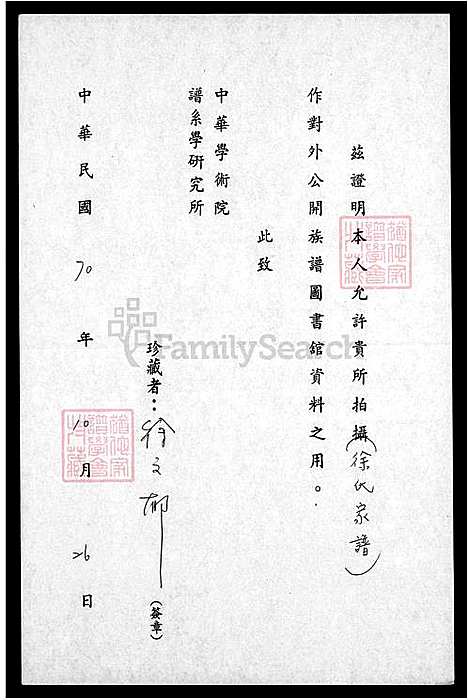 茲證明本人允許貴所拍攝(徐氏家譜)
作對外公開族譜圖書館資料之用。
此致
中華學術院
譜系學研究所
珍藏者：徐文郁
(簽章)
中華民國70年10月26日
FamilySearch